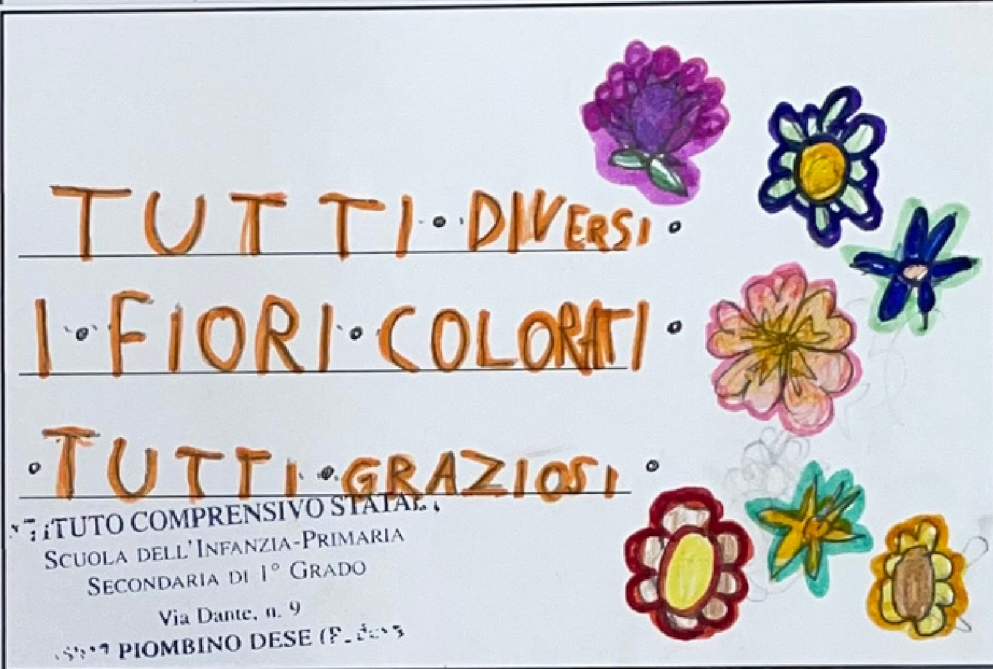 TUTTI DIVERSI
I FIORI COLORATI
TUTTI GRAZIOSI
COMPRENSIVO STATALE
SCUOLA DELL'INFANZIA-PRIMARIA
SECONDARIA DI 1° GRADO
Via Dante, n. 9
PIOMBINO DESE